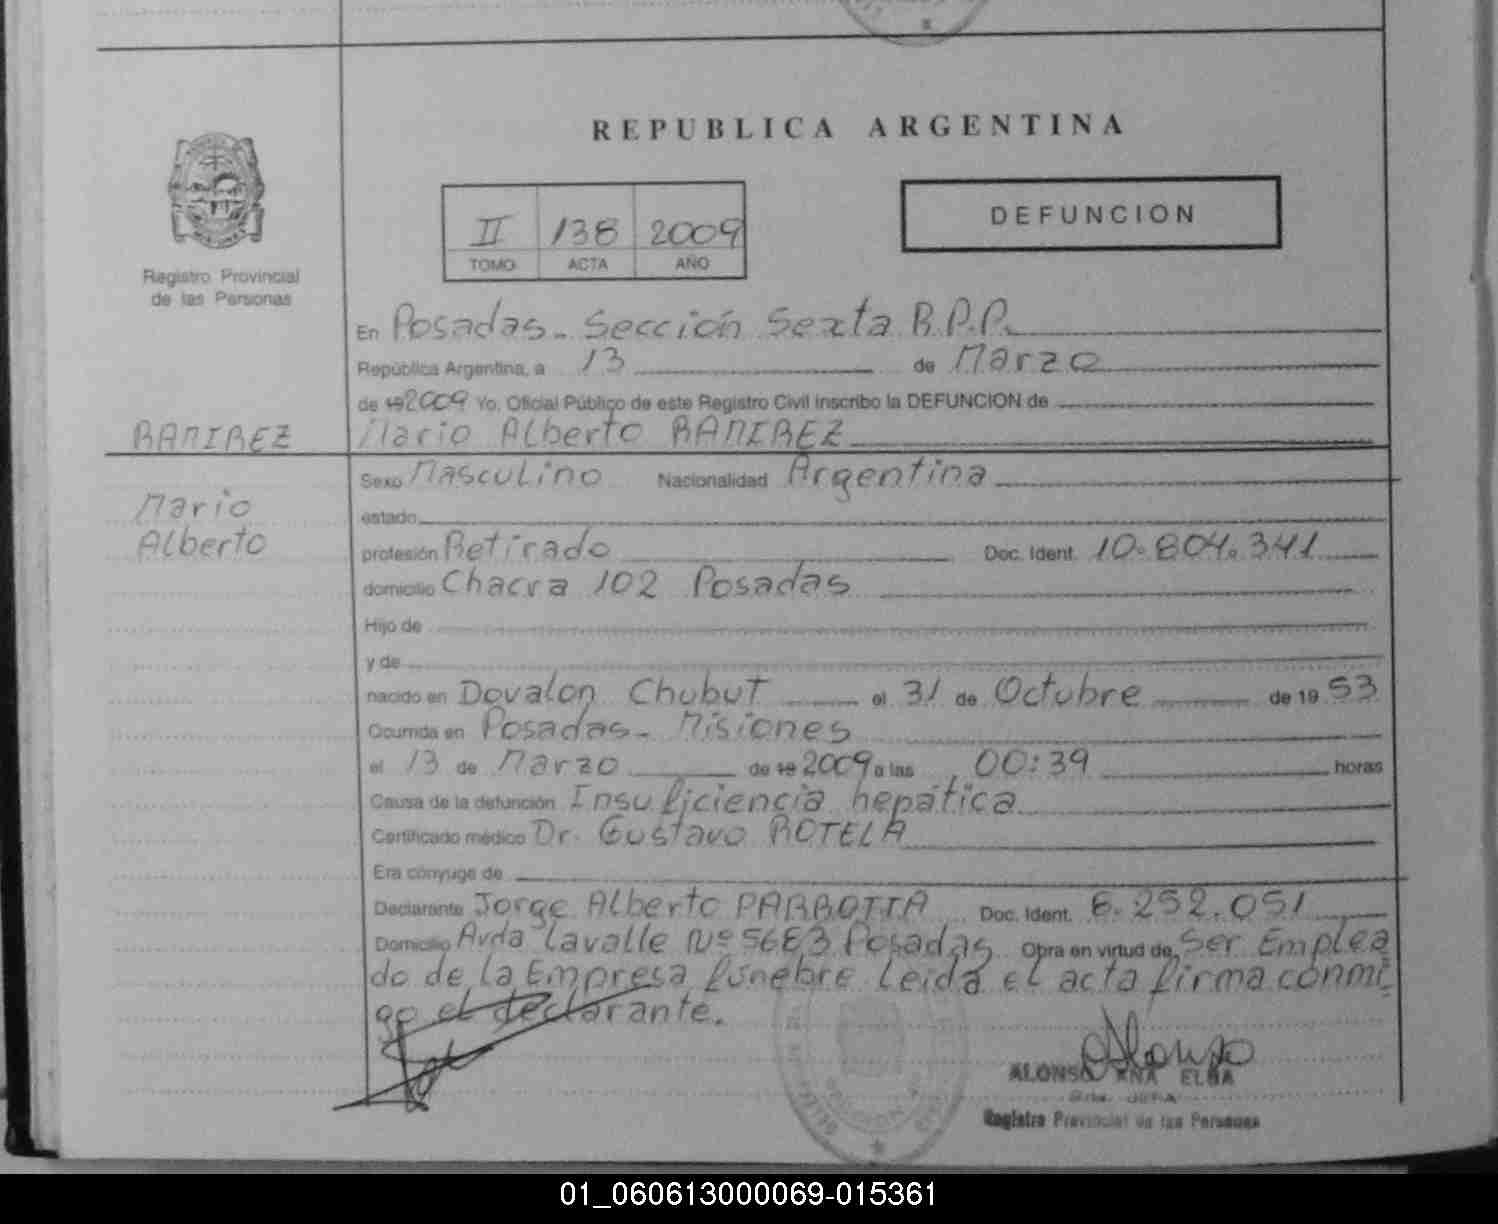 REPUBLICA ARGENTINA
II 138 2009
TOMO ACTA AÑO
DEFUNCION
Registro Provincial
de las Personas
En Posadas - Sección Sexta R.P.P.
República Argentina, a 13 de Marzo
de 19 2009 Yo, Oficial Público de este Registro Civil inscribo la DEFUNCION de
RAMIREZ
Mario Alberto RAMIREZ
Mario
Alberto
Sexo Masculino Nacionalidad Argentina
estado
profesión Retirado Doc. Ident. 10.804.341
domicilio Chacra 102 Posadas
Hijo de
y de
nacido en Dovalon Chubut el 31 de Octubre de 19 53
Ocurrida en Posadas - Misiones
el 13 de Marzo de 19 2009 a las 00:39 horas
Causa de la defunción Insuficiencia hepática
Certificado médico Dr. Gustavo ROTELA
Era cónyuge de
Declarante Jorge Alberto PARROTTA Doc. Ident. 8.252.051
Domicilio Avda Lavalle Nº 5683 Posadas Obra en virtud de Ser Emplea
do de la Empresa fúnebre Leida el acta firma conmi
go el declarante.
ALONSO ANA ELBA
Registro Provincial de las Personas
01_060613000069-015361